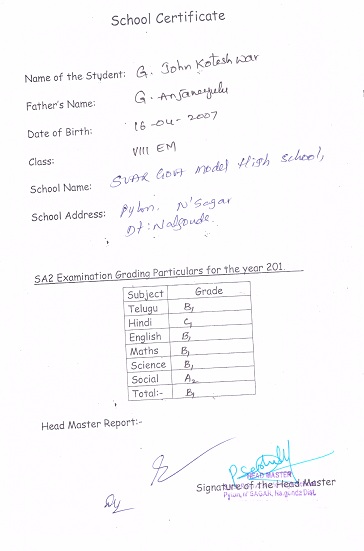 School Certificate
Name of the Student: G. John Koteshwar
Father's Name: G. Anjaneyulu
Date of Birth: 16-04-2007
Class: VIII EM
School Name: Govt Model High School,
School Address: Pylon. N'Sagar
Dt: Nalgonda.
SA2 Examination Grading Particulars for the year 201
Subject Grade
Telugu B1
Hindi C1
English B1
Maths B1
Science B1
Social A2
Total:- B1
Head Master Report:-
HEAD MASTER
Signature of the Head Master
Pylon, N' SAGAR, Nalgonda Dist.